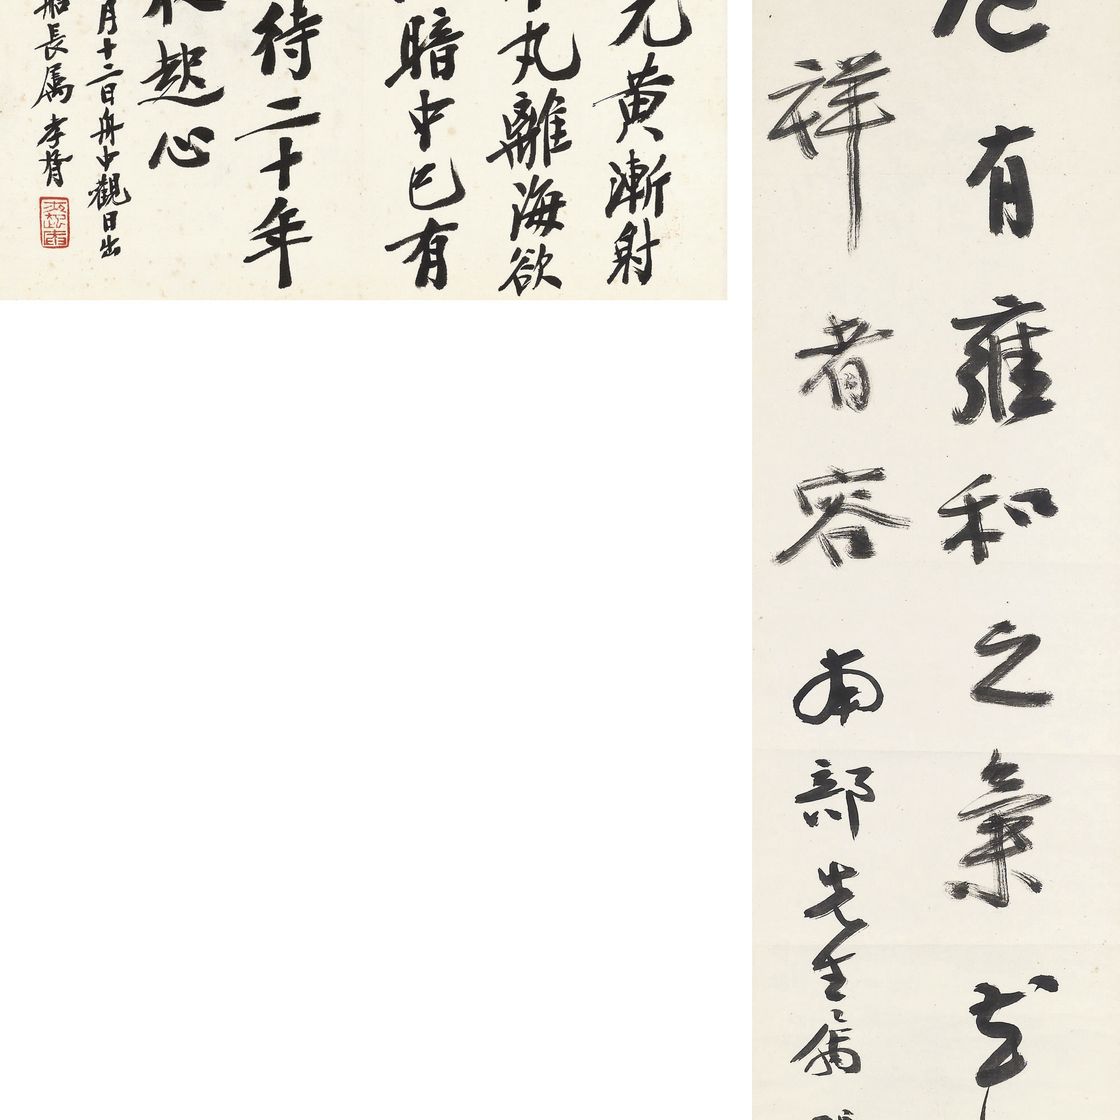 黃漸射
丸離海欲
暗中已有
待二十年
起心
月十二日舟中觀日出
船長屬 孝胥
有雍和之氣
祥者容 南部先生屬